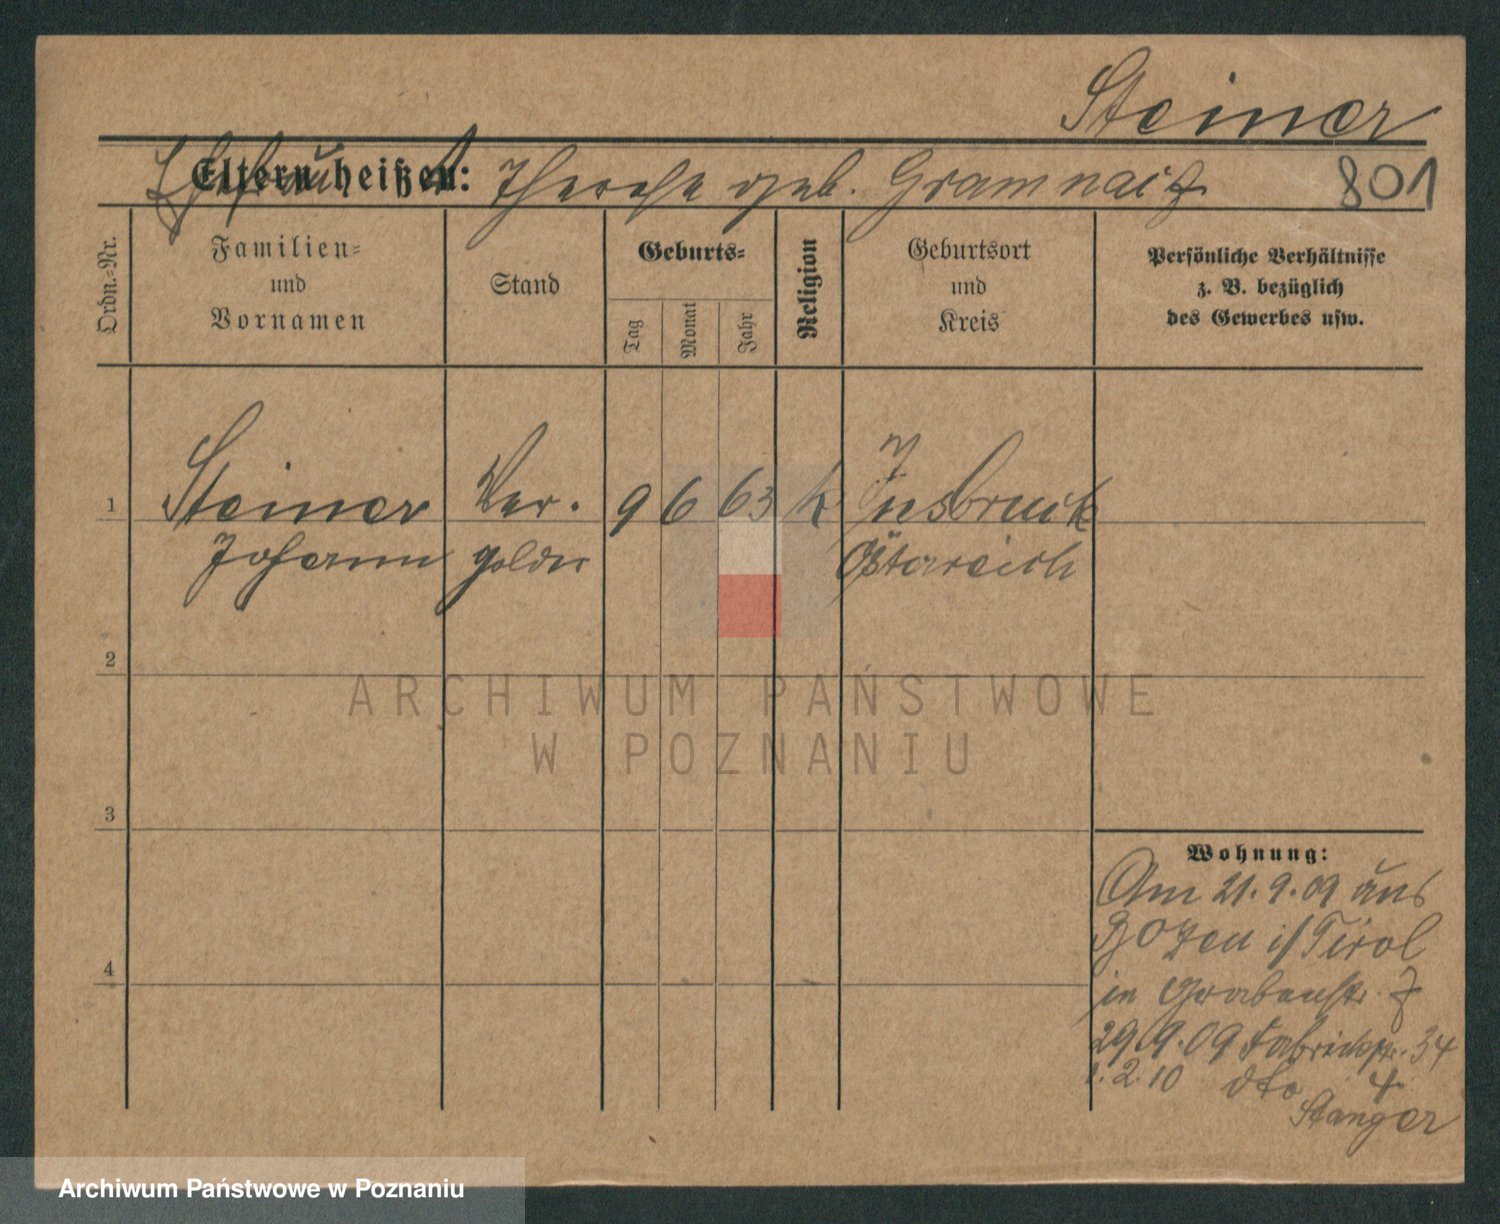 Steiner
Eltern heißen: Therese geb. Gramnaitz
801
Ordn.-Nr.
Familien-
und
Vornamen
Stand
Geburts-
Tag
Monat
Jahr
Religion
Geburtsort
und
Kreis
Persönliche Verhältnisse
z. B. bezüglich
des Gewerbes usw.
1
Steiner Ver. 9 6 63 k Insbruck
Johann golder Österreich
2
ARCHIWUM PAŃSTWOWE
W POZNANIU
3
Wohnung:
Am 21.9.09 aus
Bozen i/Tirol
4
in Grabenstr. 7
29.9.09 Fabrickstr. 34
1.2.10 dto 4
Stanger
Archiwum Państwowe w Poznaniu